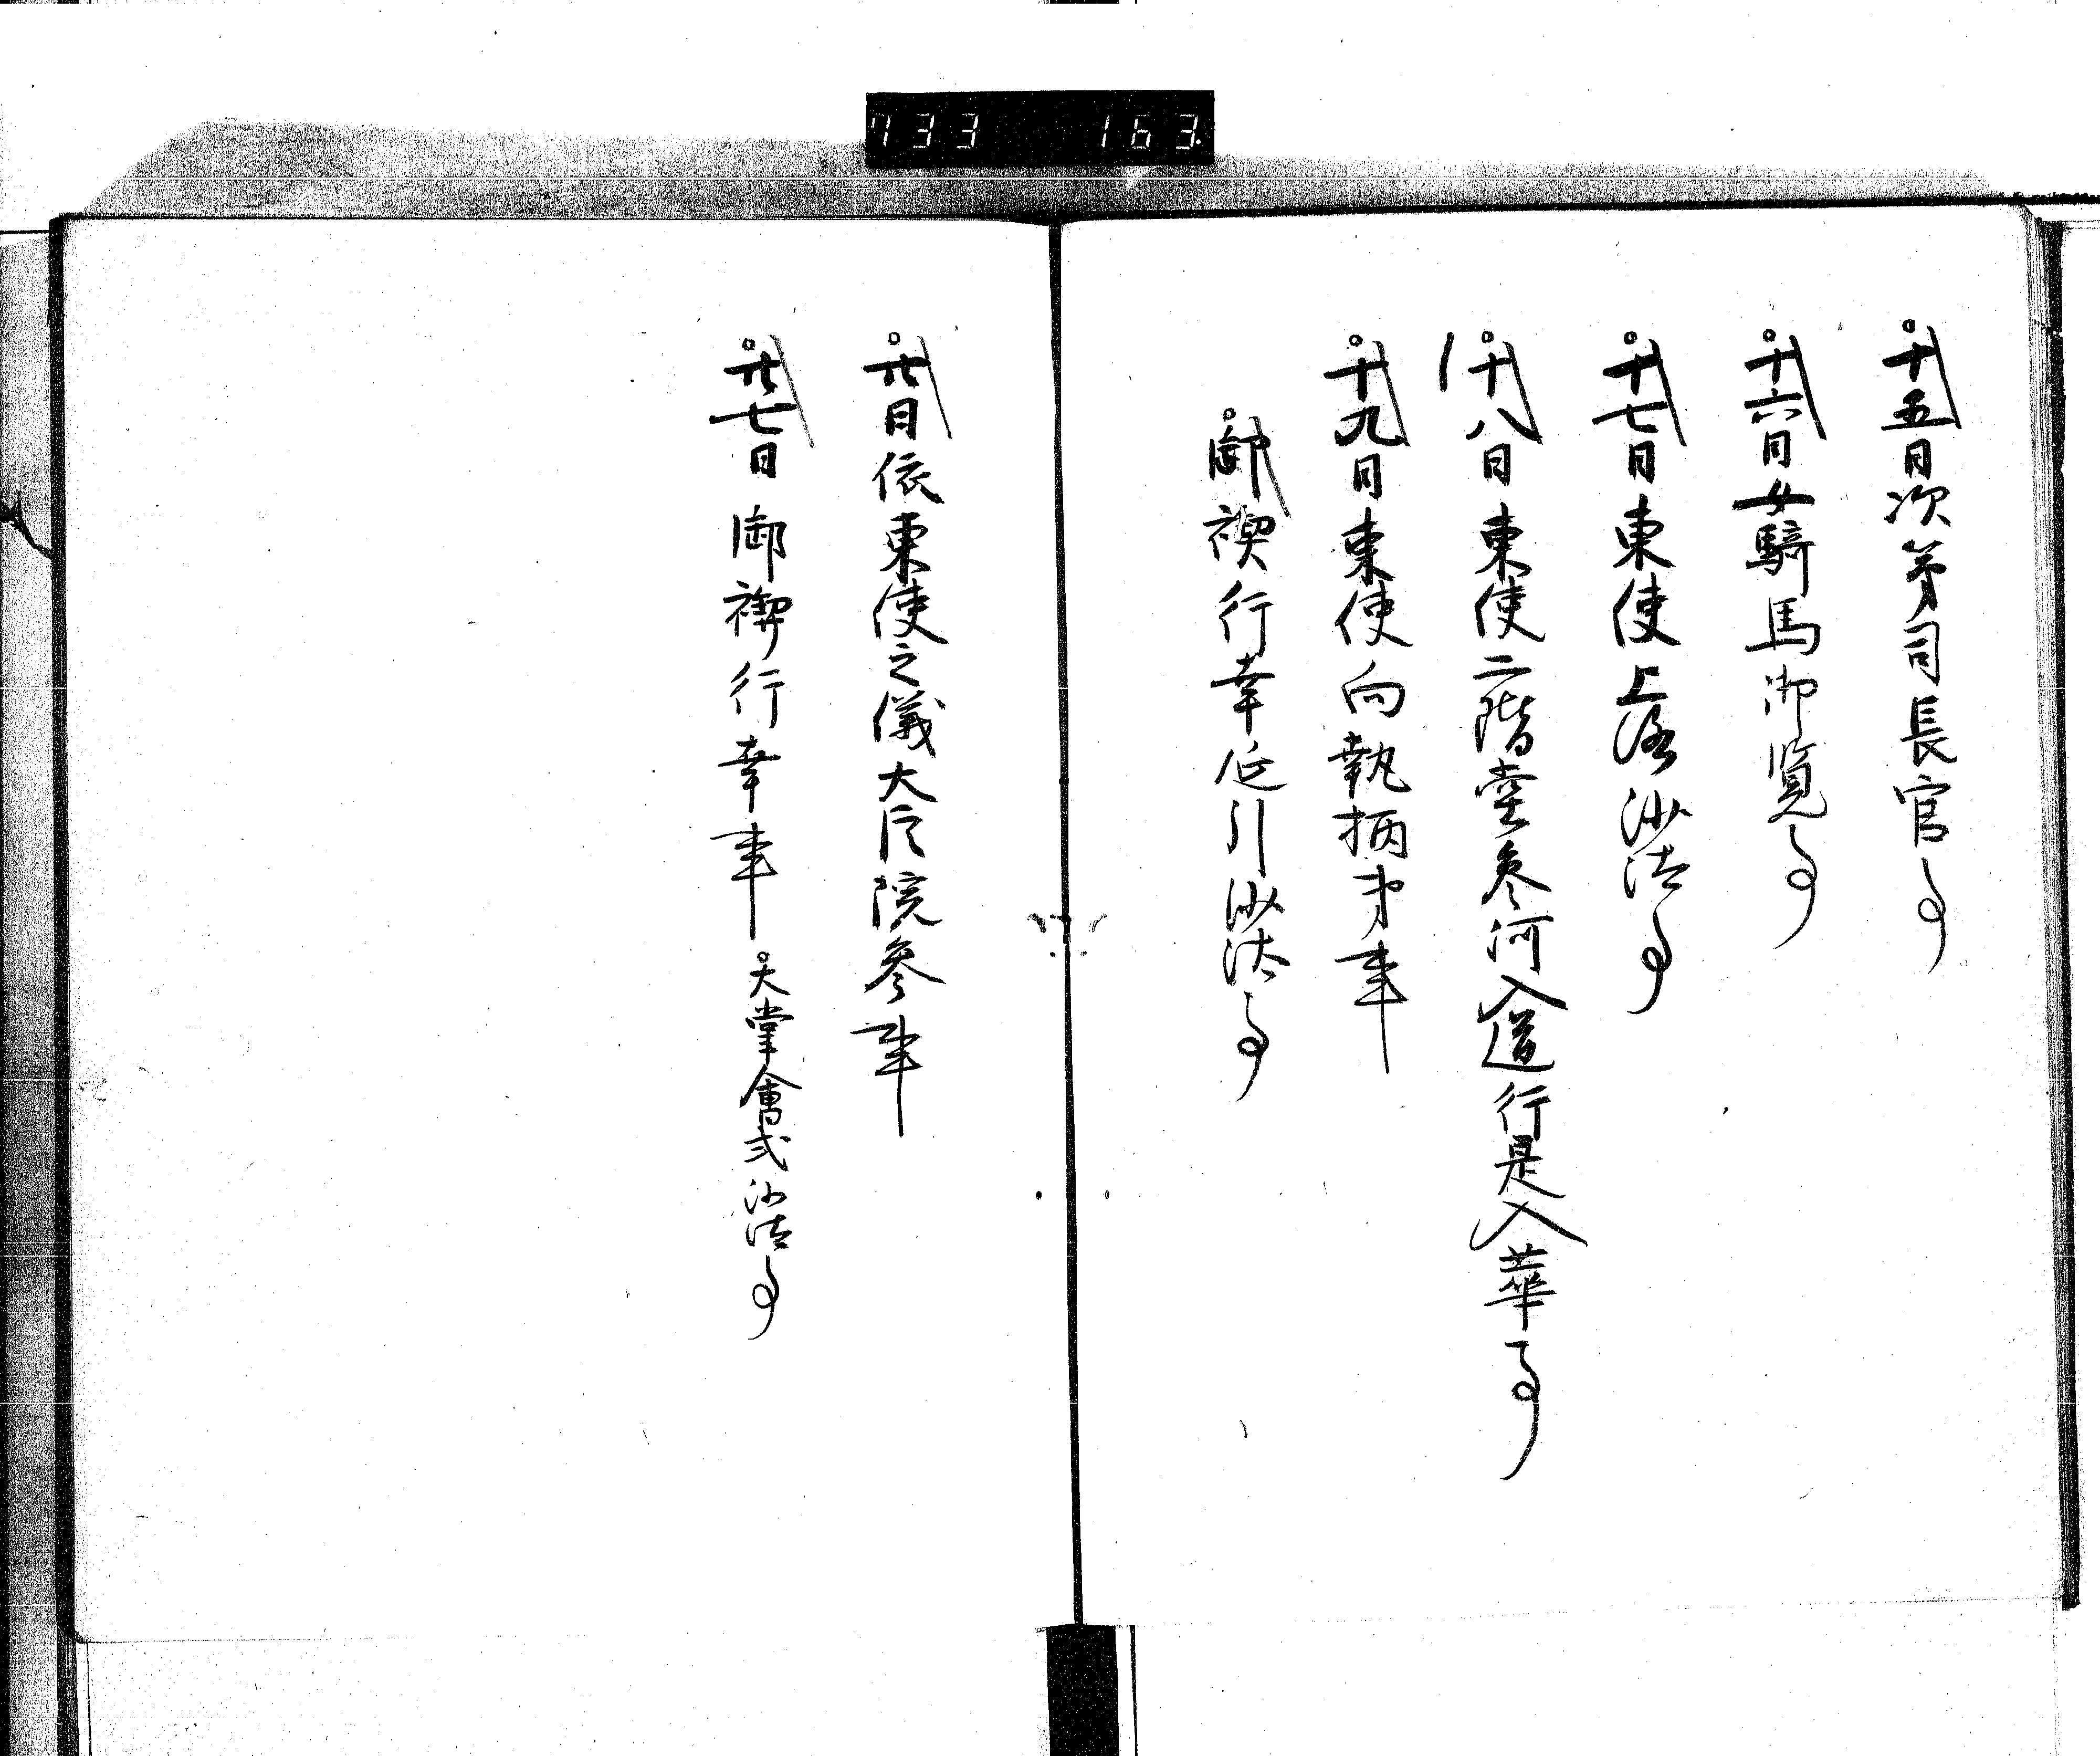 733 163
十五日次第司長官事
十六日女騎馬御覧事
十七日東使上洛沙汰事
十八日東使二階堂参河入道行是入華事
十九日東使向執柄第事
御禊行幸延引沙汰事
廿日依東使之儀大臣院参事
廿七日御禊行幸事 大掌會式沙汰事